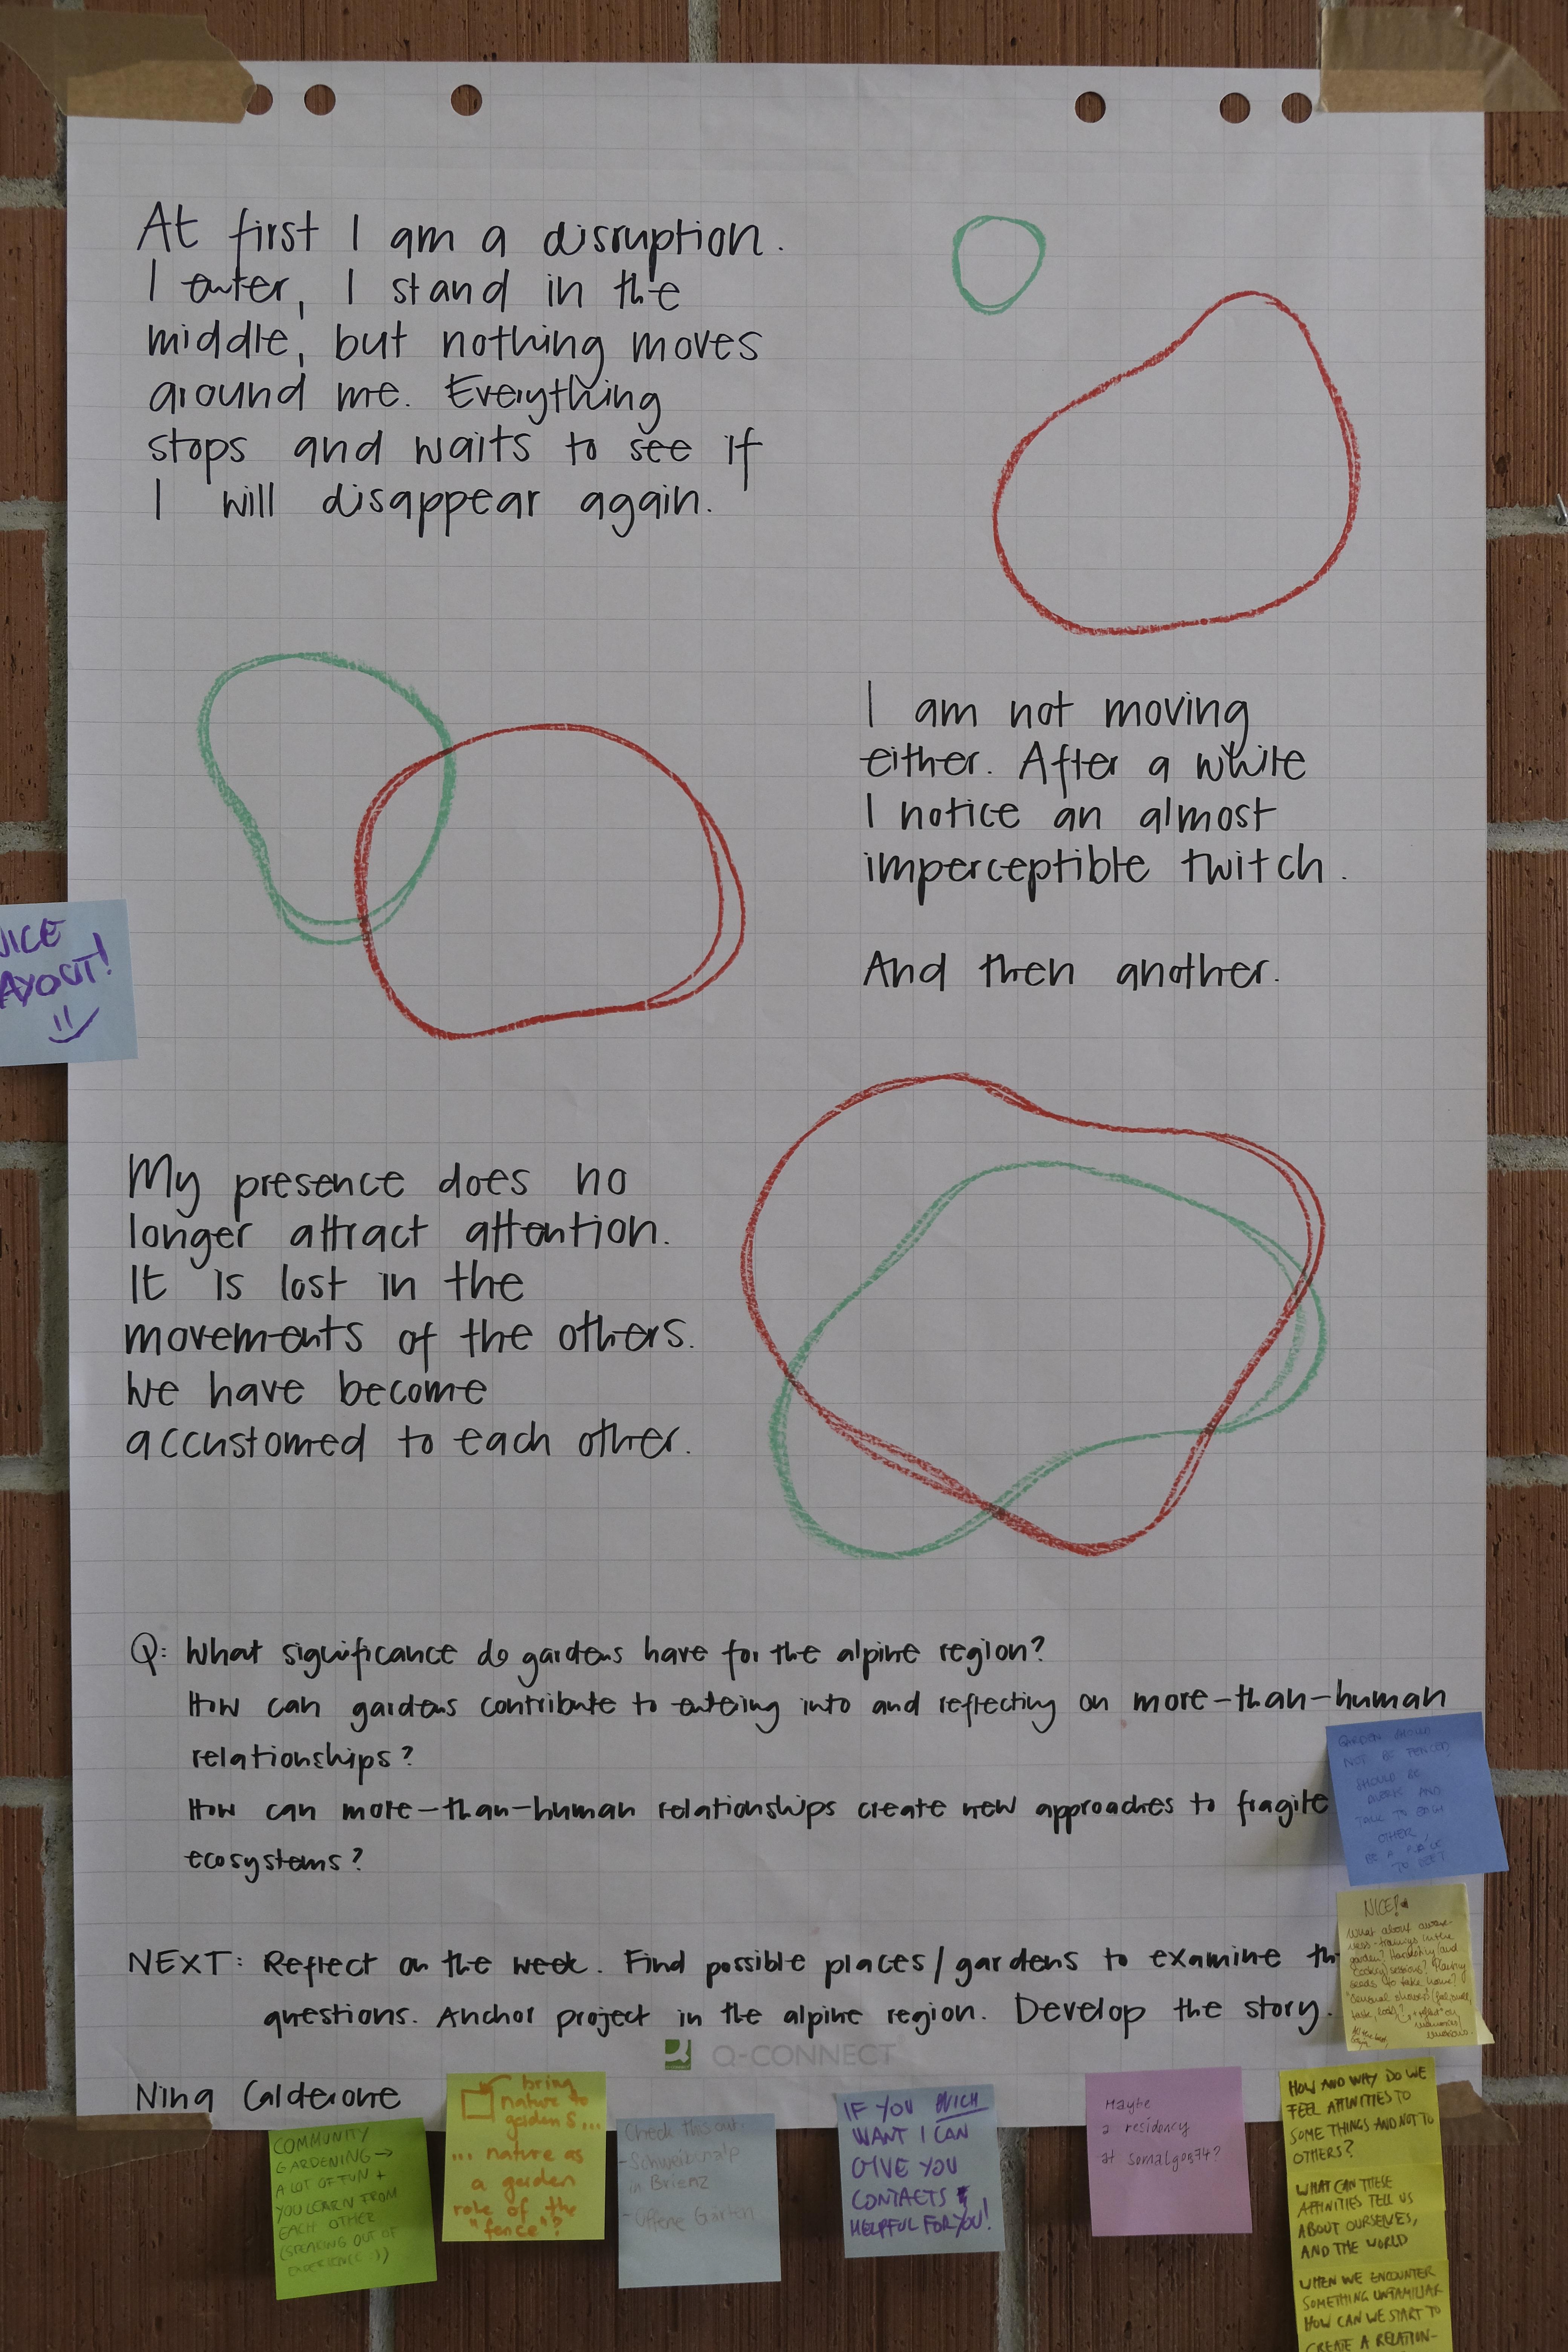 At first I am a disruption.
I enter, I stand in the
middle, but nothing moves
around me. Everything
stops and waits to see if
I will disappear again.
I am not moving
either. After a while
I notice an almost
imperceptible twitch.
And then another.
My presence does no
longer attract attention.
It is lost in the
movements of the others.
We have become
accustomed to each other.
Q: What significance do gardens have for the alpine region?
How can gardens contribute to entering into and reflecting on more-than-human
relationships?
How can more-than-human relationships create new approaches to fragile
ecosystems?
NEXT: Reflect on the week. Find possible places/gardens to examine
questions. Anchor project in the alpine region. Develop the story.
Q-CONNECT
Nina Calderone
GARDEN SHOULD
NOT BE FENCED,
SHOULD BE
AND
TALK TO EACH
OTHER,
BE A PLACE
TO MEET
NICE!
What about aware-
ness-trainings in the
garden? Harvesting and
cooking sessions? Planting
seeds to take home?
COMMUNITY
GARDENING →
A LOT OF FUN +
YOU LEARN FROM
EACH OTHER
(SPEAKING OUT OF
EXPERIENCE :))
bring
nature to
gardens...
... nature as
a garden
role of the
"fence"?
Check this out:
- Schweibenalp
in Brienz
- Offene Gärten
IF YOU
WANT I CAN
GIVE YOU
CONTACTS
HELPFUL FOR YOU!
Maybe
a residency
at somalgors74?
HOW AND WHY DO WE
FEEL AFFINITIES TO
SOME THINGS AND NOT TO
OTHERS?
WHAT CAN THESE
AFFINITIES TELL US
ABOUT OURSELVES,
AND THE WORLD
WHEN WE ENCOUNTER
SOMETHING UNFAMILIAR
HOW CAN WE START TO
CREATE A RELATION-